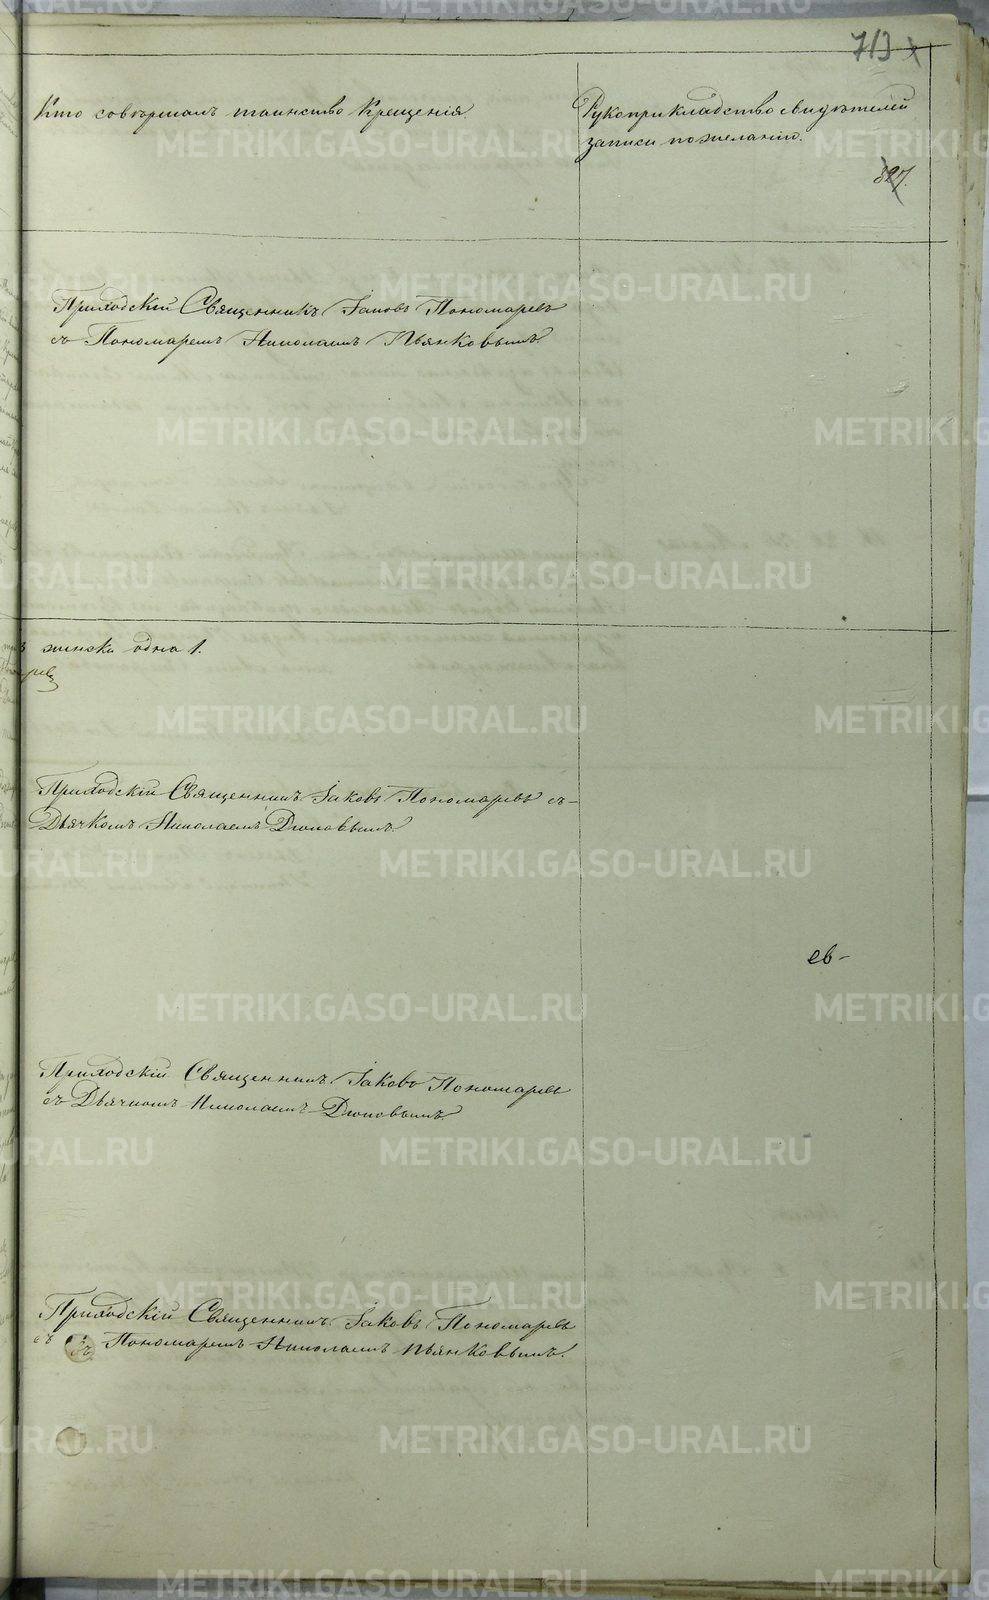 713
Кто совѣршалъ таинство Крещенія.
Рукоприкладство свидѣтелей
записи по желанію.
827.
Приходскій Священникъ Іаковъ Пономаревъ
съ Пономаремъ Николаемъ Пьянковымъ.
женска одна 1.
Приходскій Священникъ Іаковъ Пономаревъ съ-
Дьячкомъ Николаемъ Поповымъ.
ев-
Приходскій Священникъ Іаковъ Пономаревъ
съ Дьячкомъ Николаемъ Поповымъ.
Приходскій Священникъ Іаковъ Пономаревъ
съ Пономаремъ Николаемъ Пьянковымъ.
METRIKI.GASO-URAL.RU